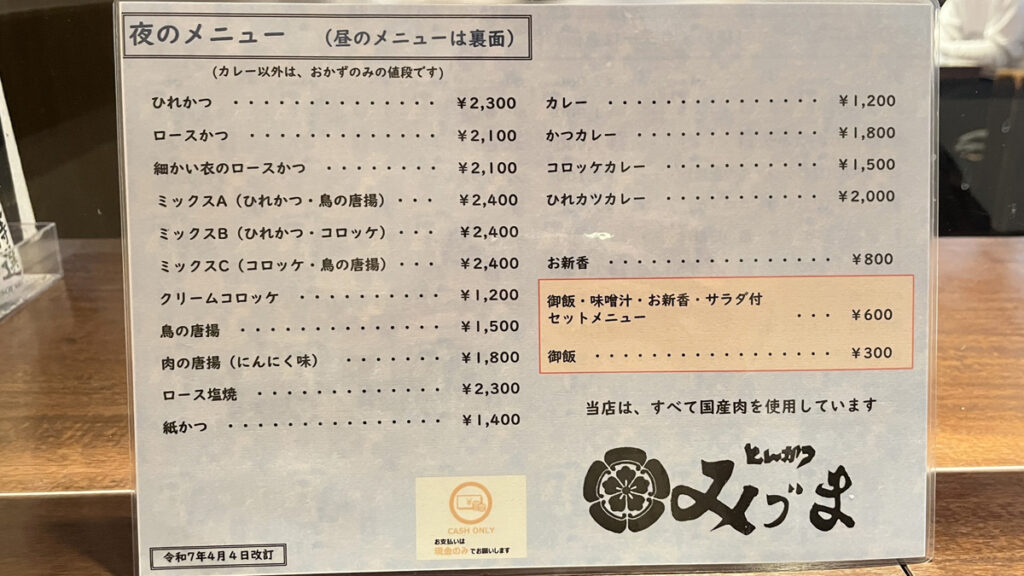 夜のメニュー （昼のメニューは裏面）
(カレー以外は、おかずのみの値段です)
ひれかつ ・・・・・・・・・・・・・・ ¥2,300
ロースかつ ・・・・・・・・・・・・・ ¥2,100
細かい衣のロースかつ ・・・・・・・・ ¥2,100
ミックスA（ひれかつ・鳥の唐揚）・・・ ¥2,400
ミックスB（ひれかつ・コロッケ）・・・ ¥2,400
ミックスC（コロッケ・鳥の唐揚）・・・ ¥2,400
クリームコロッケ ・・・・・・・・・・ ¥1,200
鳥の唐揚 ・・・・・・・・・・・・・・ ¥1,500
肉の唐揚（にんにく味） ・・・・・・・ ¥1,800
ロース塩焼 ・・・・・・・・・・・・・ ¥2,300
紙かつ ・・・・・・・・・・・・・・・ ¥1,400
カレー ・・・・・・・・・・・・・・・ ¥1,200
かつカレー ・・・・・・・・・・・・・ ¥1,800
コロッケカレー ・・・・・・・・・・・ ¥1,500
ひれカツカレー ・・・・・・・・・・・ ¥2,000
お新香 ・・・・・・・・・・・・・・・ ¥800
御飯・味噌汁・お新香・サラダ付
セットメニュー ・・・ ¥600
御飯 ・・・・・・・・・・・・・・・・ ¥300
当店は、すべて国産肉を使用しています
とんかつ
みづま
CASH ONLY
お支払いは
現金のみでお願いします
令和7年4月4日改訂